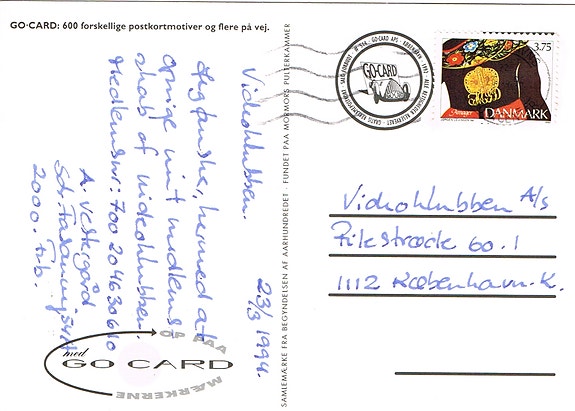 GO-CARD: 600 forskellige postkortmotiver og flere på vej.
Videoklubben.
23/3 1994.
Jeg ønsker, hermed at
opsige mit medlems
skab af videoklubben.
Medlemsnr: 7002046306 10
A. Vestergård
2000. Frb.
OP PAA
med
GO CARD
MÆRKERNE
SAMLEMÆRKE FRA BEGYNDELSEN AF AARHUNDREDET · FUNDET PAA MORMORS PULTERKAMMER
GO-CARD
3.75
Amager
DANMARK
Videoklubben A/S
Pilestræde 60.1
1112 København.K.